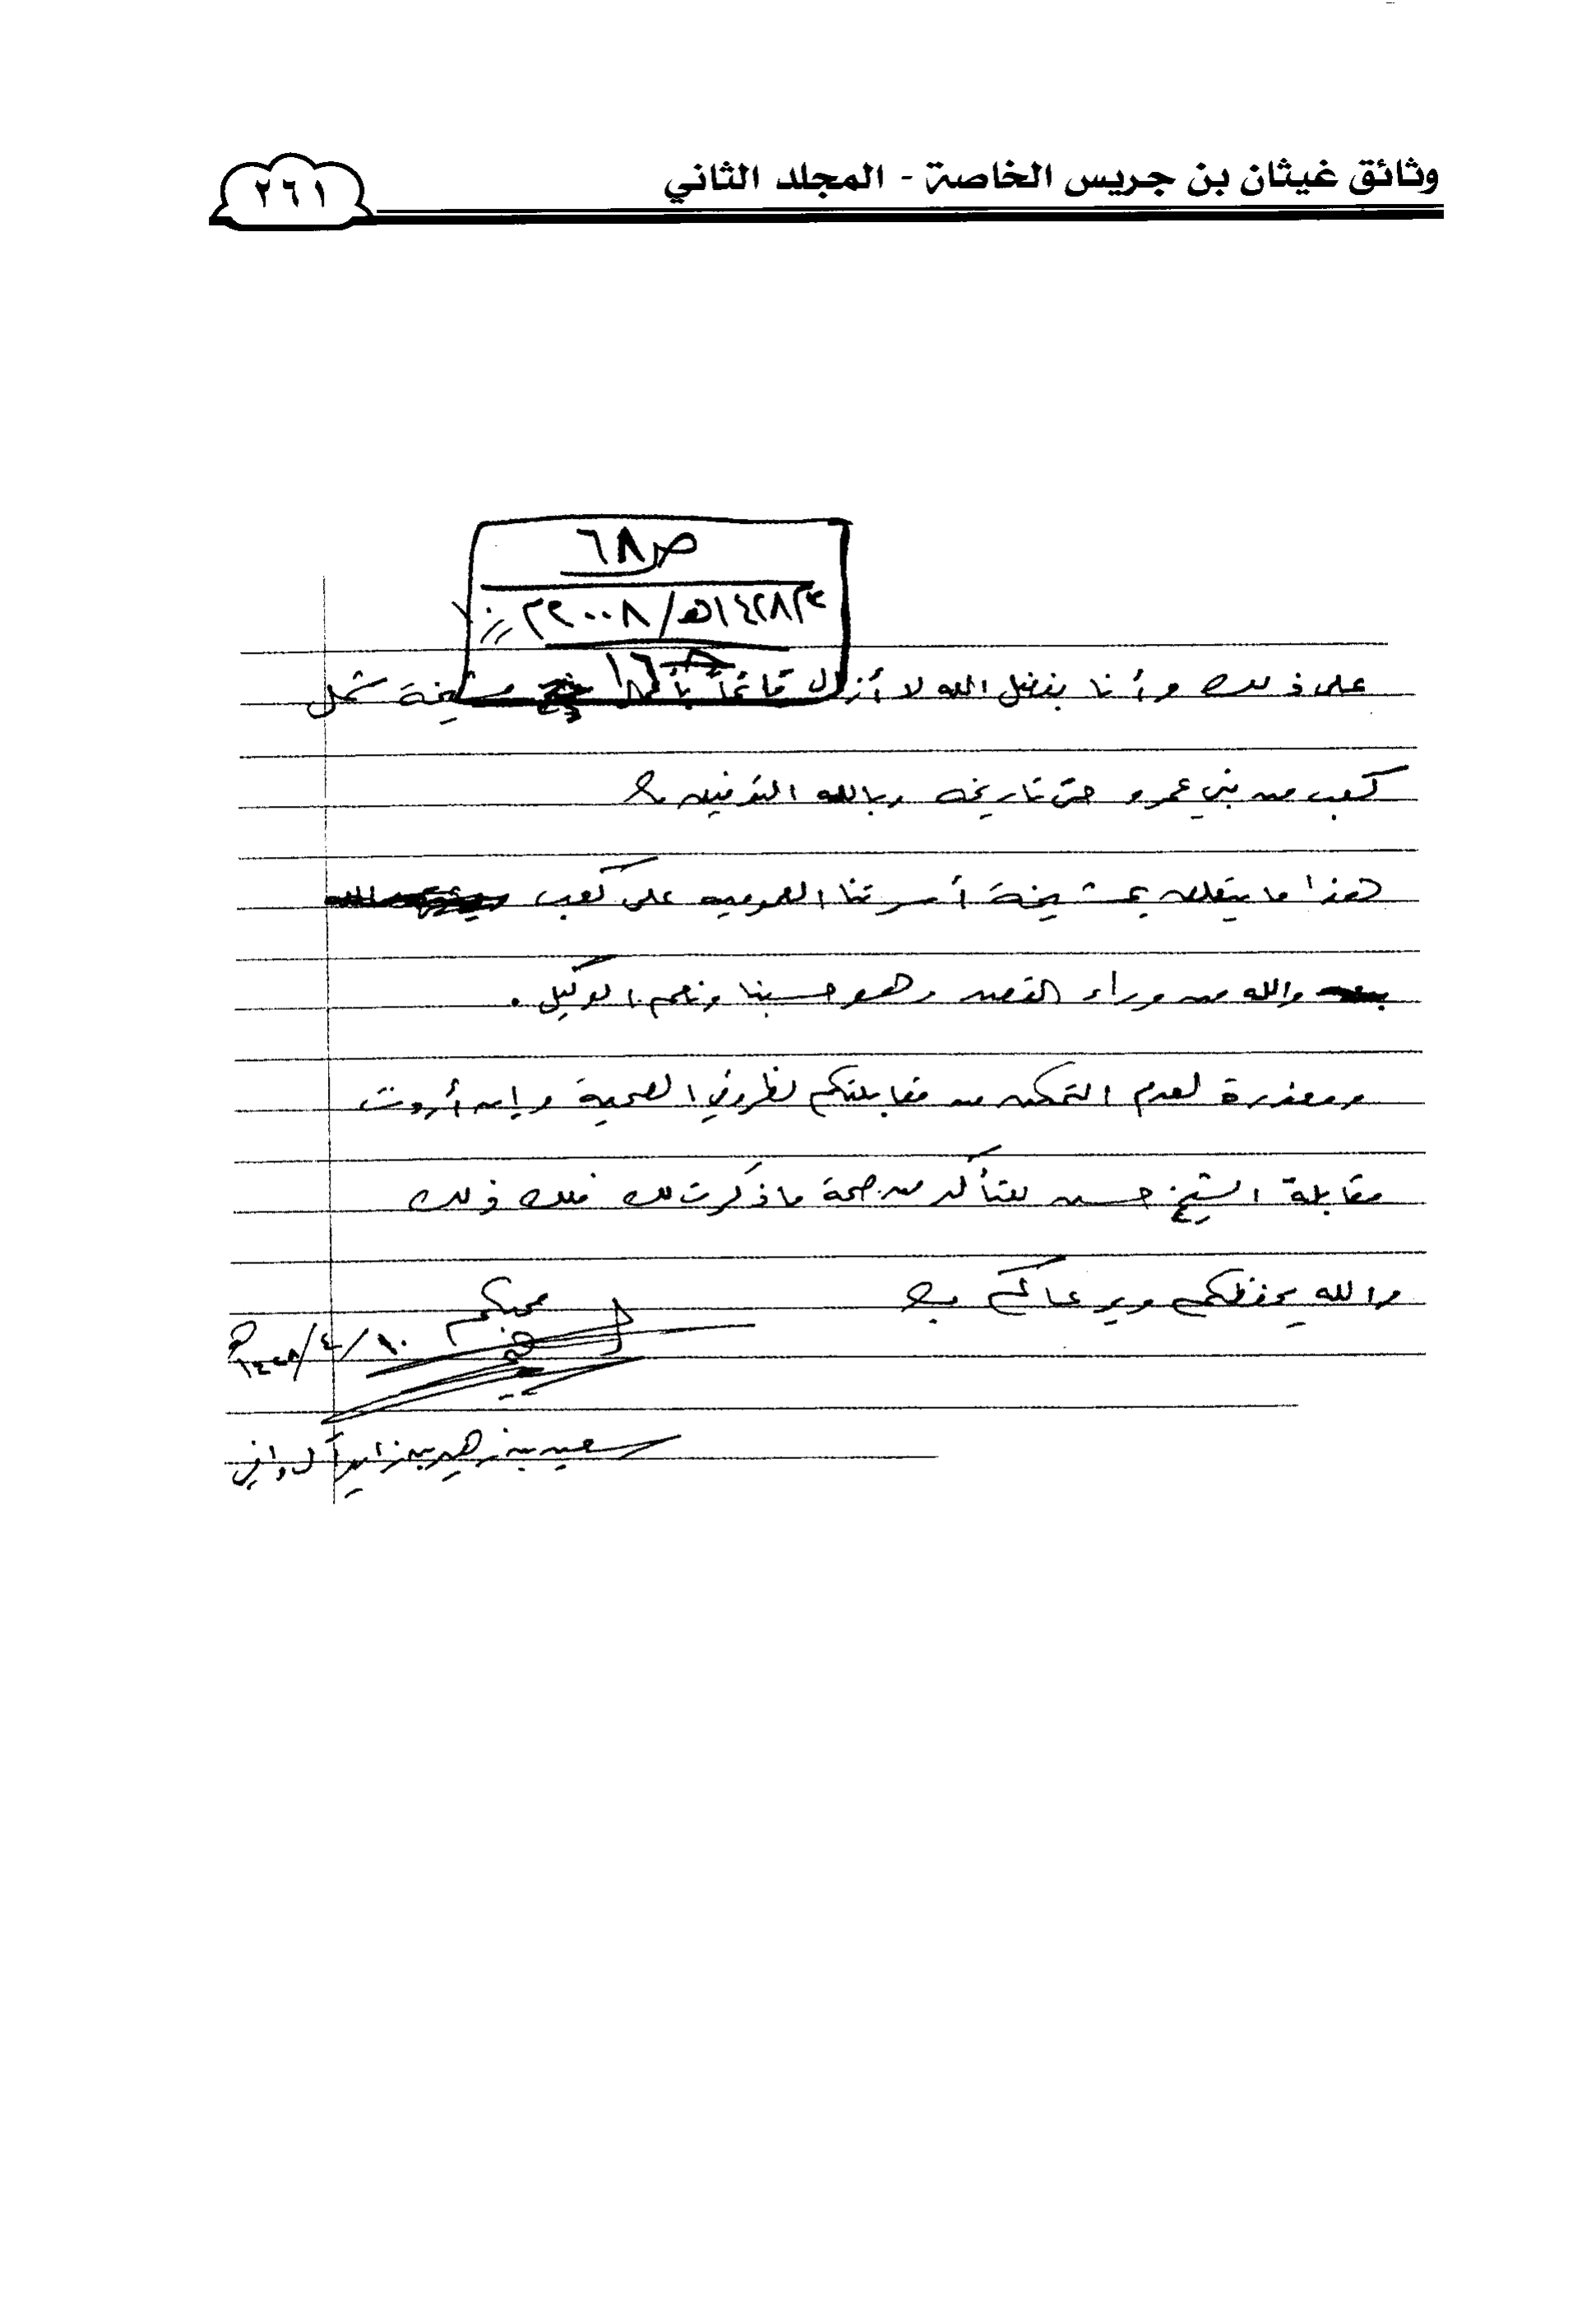 وثائق غيثان بن جريس الخاصة - المجلد الثاني
٢٦١
ص ٦٨
١٤٢٨هـ / ٢٠٠٨م
على ذلك وأنا بفضل الله لا أزال قائماً مشيخة شمل
كعب من بني عمرو حتى تاريخه وبالله التوفيق
هذا ما يتعلق بمشيخة أسرتنا العمومية على كعب
والله من وراء القصد وهو حسبنا ونعم الوكيل .
ومعذرة لعدم التمكن من مقابلتكم لظروفي الصحية وإن أردت
مقابلة الشيخ حسن للتأكد من صحة ما ذكرت لك فلك ذلك
والله يحفظكم ويرعاكم
محبكم
١٠/٤/١٤٢٨هـ
سعيد بن زهير بن زايد آل وافي